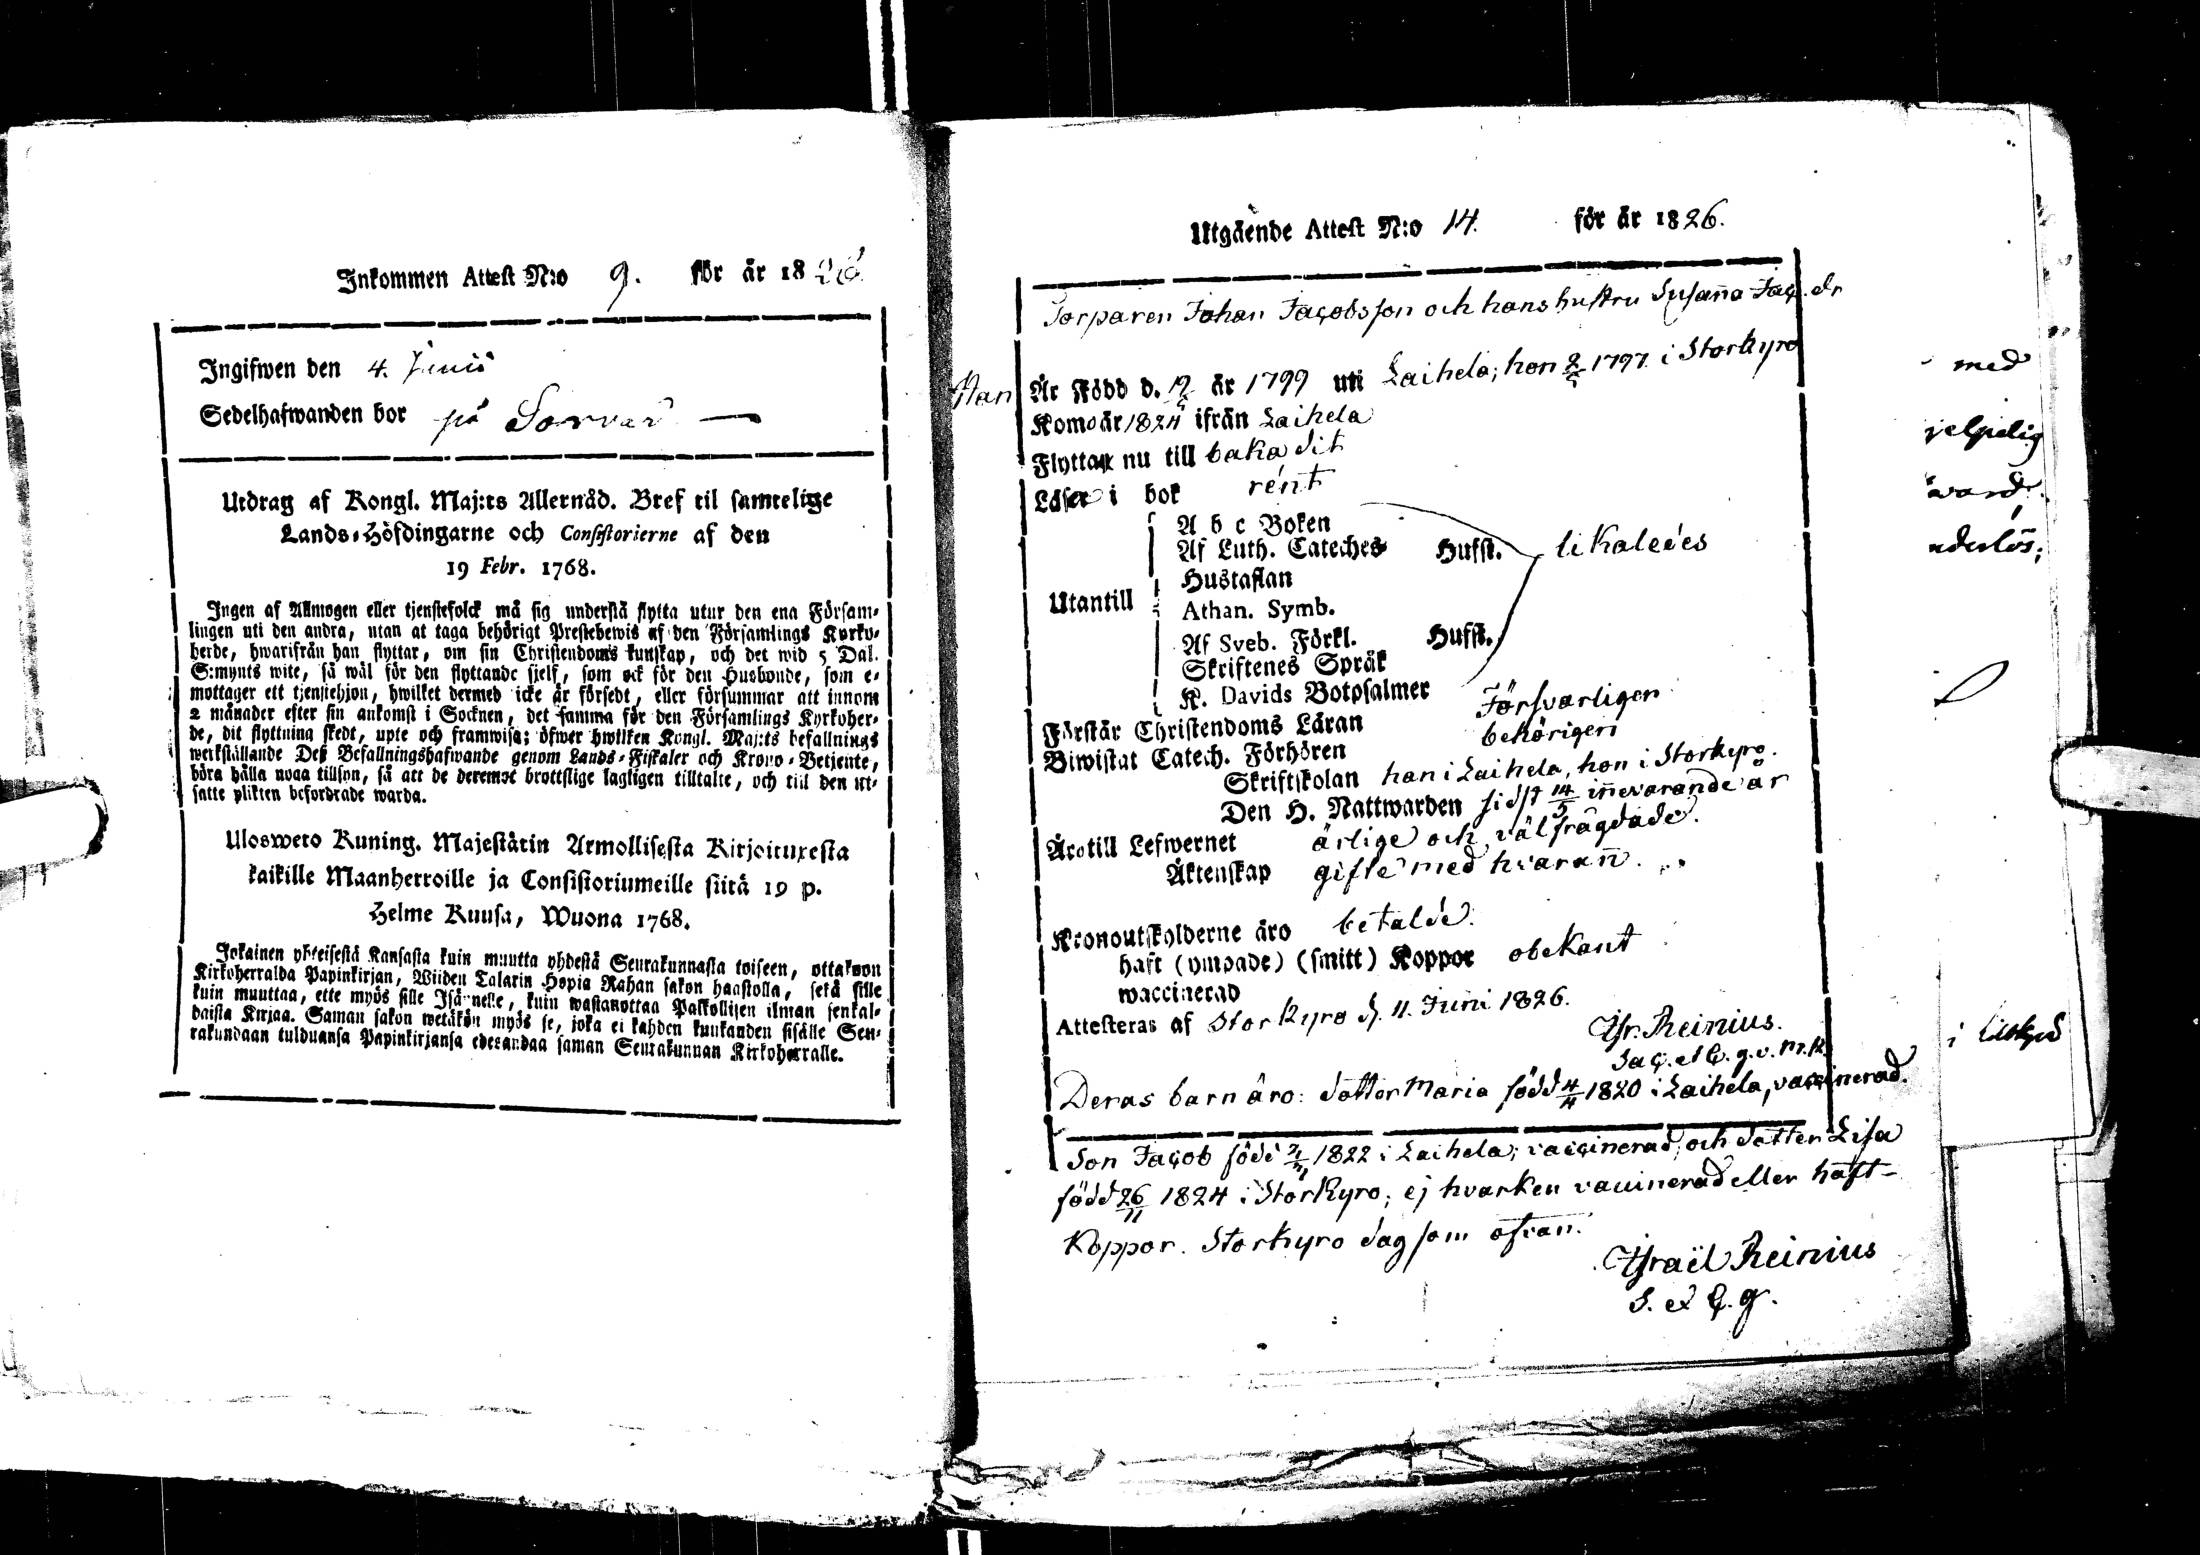 Inkommen Attest N:o 9. för år 1826.
Ingifwen den 4. Junii
Sedelhafwanden bor på Sorvar
Utdrag af Kongl. Maj:ts Allernåd. Bref til samtelige
Lands-Höfdingarne och Consistorierne af den
19 Febr. 1768.
Ingen af Allmogen eller tjenstefolck må sig understå flytta utur den ena Försam-
lingen uti den andra, utan at taga behörigt Prestebewis af den Församlings Kyrko-
herde, hwarifrån han flyttar, om sin Christendoms kunskap, och det wid 5 Dal.
S:mynts wite, så wäl för den flyttande sjelf, som ock för den Husbonde, som e-
mottager ett tjenstehjon, hwilket dermed icke är försedt, eller försummar att innom
2 månader efter sin ankomst i Socknen, det samma för den Församlings Kyrkoher-
de, dit flyttning skedt, upte och framwisa; öfwer hwilken Kongl. Maj:ts befallnings
werkställande Deß Befallningshafwande genom Lands-Fiskaler och Krono-Betjente,
böra hålla noga tillsyn, så att de deremot brottslige lagligen tilltalte, och till den ut-
satte plikten befordrade warda.
Ulosweto Kuning. Majestätin Armollisesta Kirjoituxesta
kaikille Maanherroille ja Consistoriumeille siitä 19 p.
Helme Kuusa, Wuona 1768.
Jokainen yhteisestä Kansasta kuin muutta yhdestä Seurakunnasta toiseen, ottakoon
Kirkoherralda Papinkirjan, Wiiden Talarin Hopia Rahan sakon haastolla, sekä sille
kuin muuttaa, ette myös sille Isännelle, kuin wastanottaa Palkollisen ilman senkal-
daista Kirjaa. Saman sakon wetäkön myös se, joka ei kahden kuukauden sisälle Seu-
rakundaan tulduansa Papinkirjansa edesandaa saman Seurakunnan Kirkoherralle.
Utgående Attest N:o 14. för år 1826.
Torparen Johan Jacobsson och hans hustru Susanna Jac.dr
Han Är Född d. 12 år 1799 uti Laihela; hon 1797 i Storkyro
Kom år 1824 ifrån Laihela
Flyttar nu till baka dit
Läser i bok rént
Utantill
A b c Boken
Af Luth. Cateches Hufst. likaledes
Hustaflan
Athan. Symb.
Af Sveb. Förkl. Hufst.
Skriftenes Språk
K. Davids Botpsalmer
Förstår Christendoms Läran Försvarligen
Biwistat Catech. Förhören behörigen
Skriftskolan han i Laihela, hon i Storkyro.
Den H. Nattwarden sidst 14/5 innevarande år
Äro till Lefwernet ärlige och välfrägdade.
Äktenskap gifte med hvarann.
Kronoutskylderne äro betalde.
haft (ympade) (smitt) Koppor obekant
waccinerad
Attesteras af Storkyro d. 11. Juni 1826.
Isr. Reinius.
Sac. et C. g.
Deras barn äro: dotter Maria född 4/4 1820 i Laihela, vaccinerad.
Son Jacob född 1822 i Laihela; vaccinerad; och dotter Lisa
född 26/11 1824 i Storkyro; ej hvarken vaccinerad eller haft
Koppor. Storkyro dag som ofvan.
Israël Reinius
S. et C. g.
med